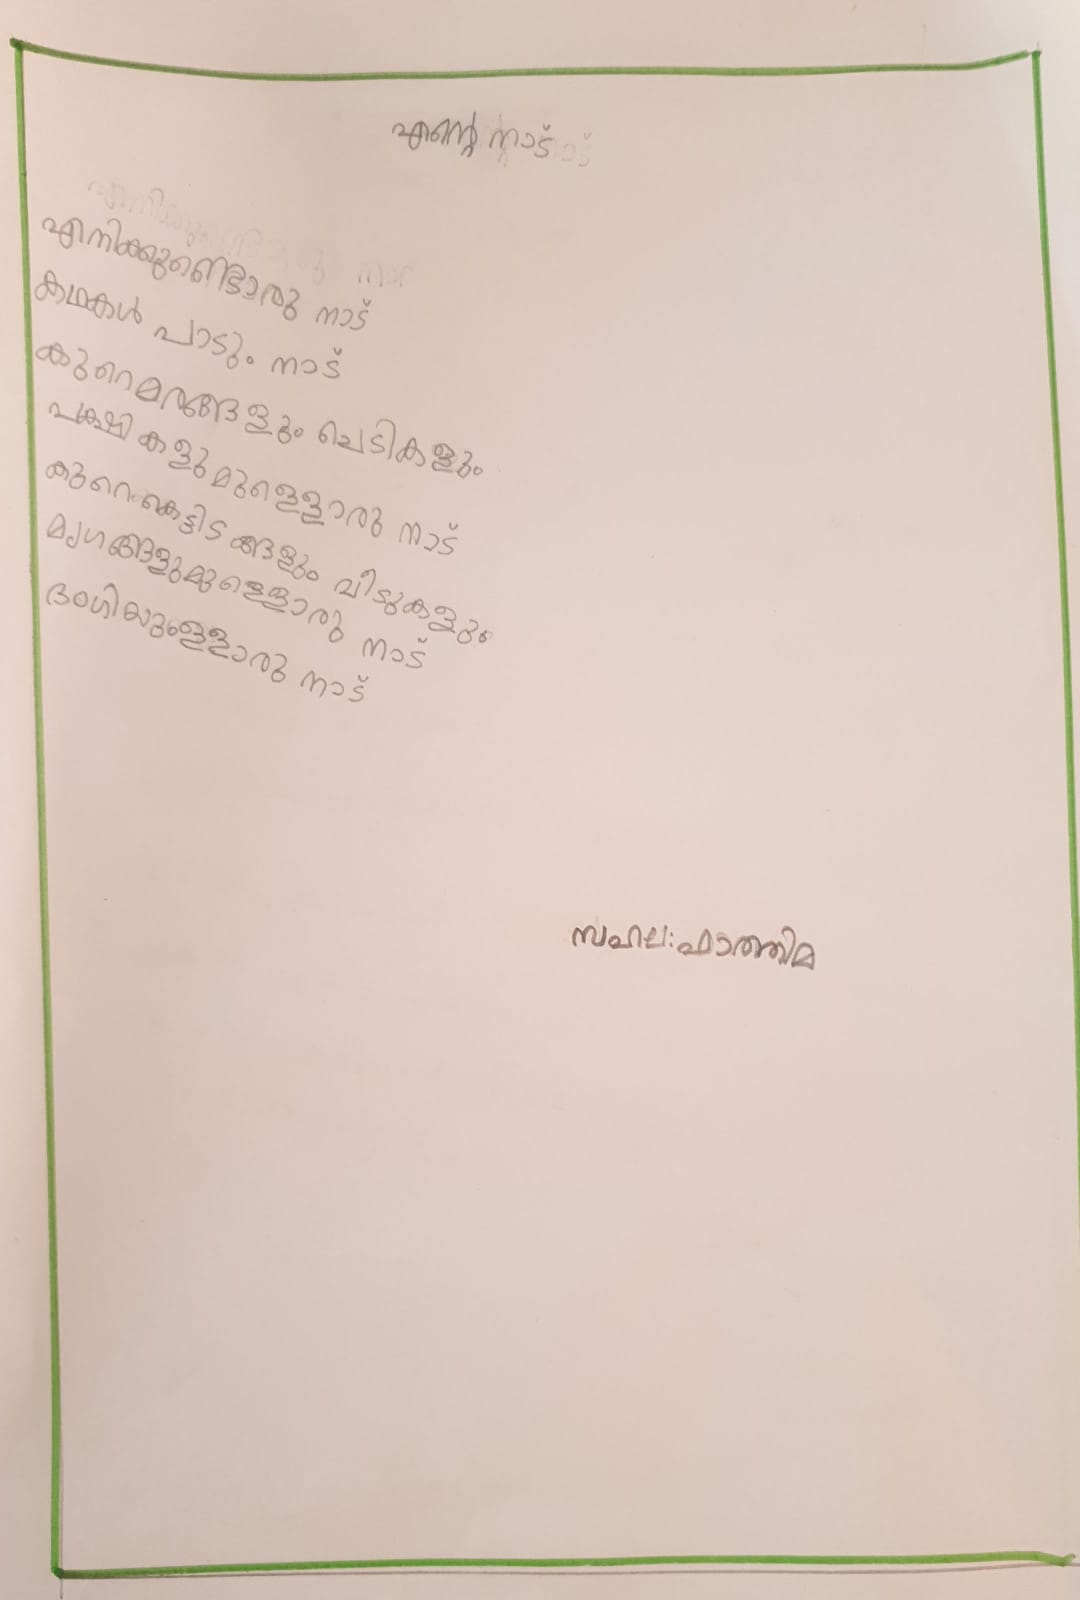 എന്റെ നാട്
എനിക്കുണ്ടൊരു നാട്
കഥകൾ പാടും നാട്
കുറെമരങ്ങളും ചെടികളും
പക്ഷികളുമുള്ളൊരു നാട്
കുറെകെട്ടിടങ്ങളും വീടുകളും
മൃഗങ്ങളുമുള്ളൊരു നാട്
ഭംഗിയുള്ളൊരു നാട്
സഹല:ഫാത്തിമ